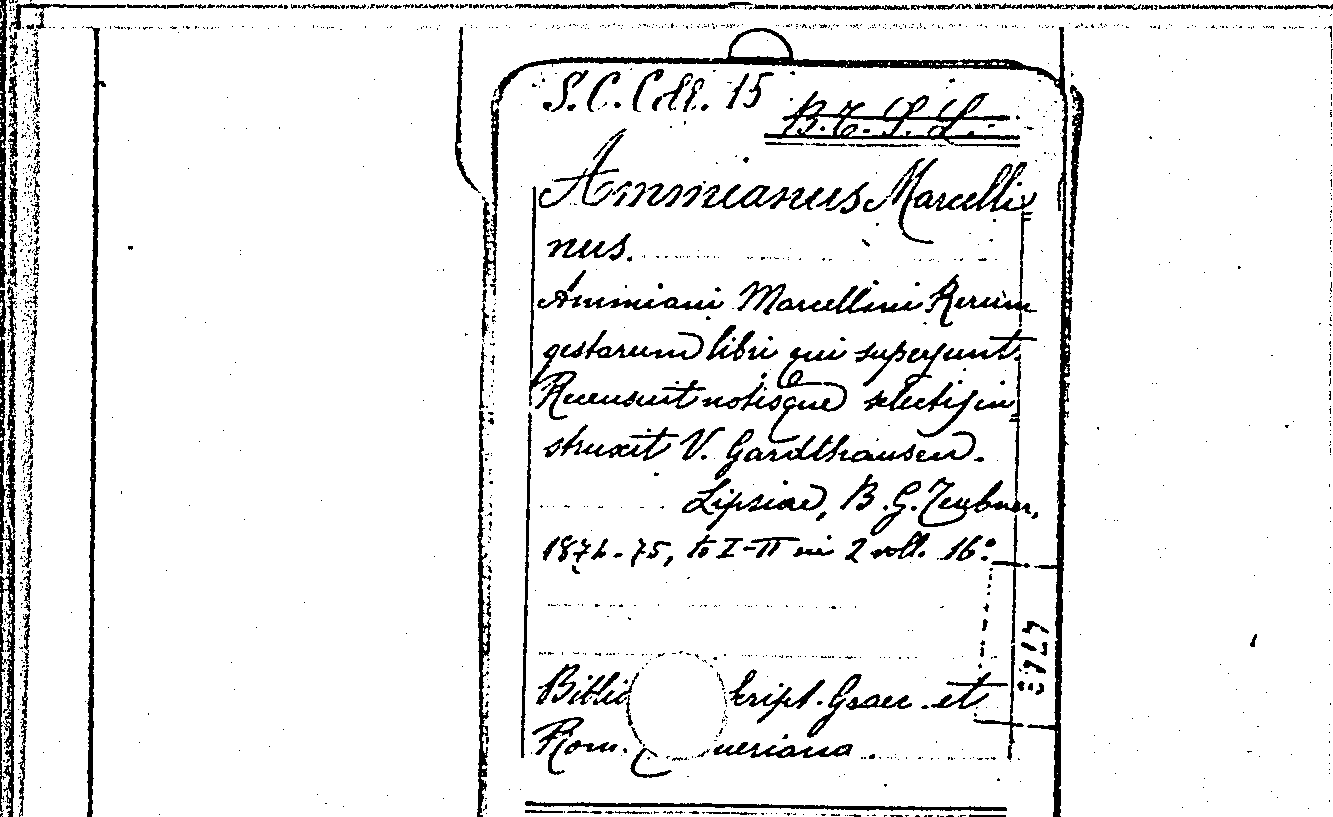 S. C. Coll. 15
B. T. S. L.
Ammianus Marcelli=
nus.
Ammiani Marcellini Rerum
gestarum libri qui supersunt.
Recensuit notisque selectis in=
struxit V. Gardthausen.
Lipsiae, B. G. Teubner,
1874-75, to I-II in 2 voll. 16.°
Biblio script. Graec. et
Rom. ueriana.